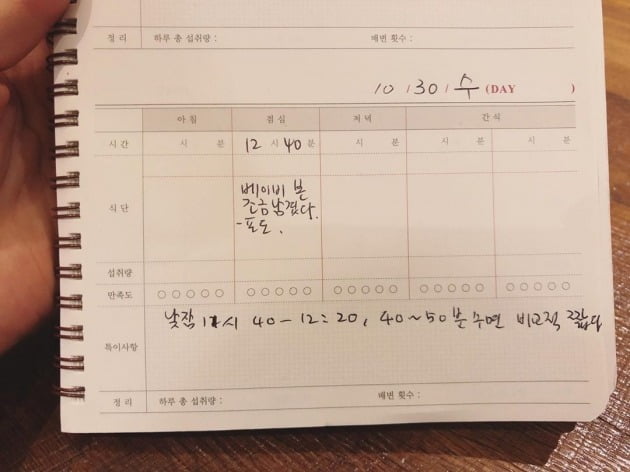 정리 하루 총 섭취량 : 배변 횟수 :
10 / 30 / 수 (DAY )
아침 점심 저녁 간식
시간 시 분 12 시 40 분 시 분 시 분 시 분
식단 베이비 본
조금 남겼다.
- 포도.
섭취량
만족도 ○ ○ ○ ○ ○ ○ ○ ○ ○ ○ ○ ○ ○ ○ ○ ○ ○ ○ ○ ○ ○ ○ ○ ○ ○
낮잠 11시 40 - 12:20, 40~50분 수면 비교적 짧다
특이사항
정리 하루 총 섭취량 : 배변 횟수 :